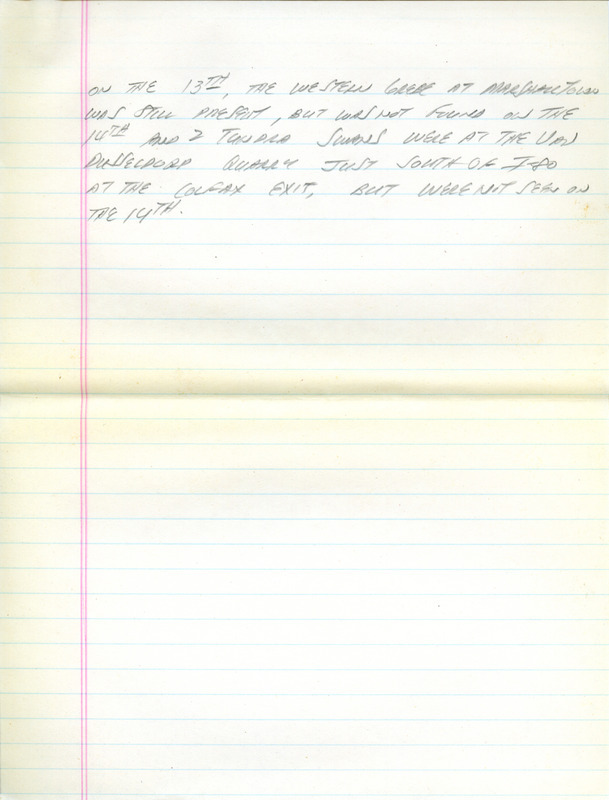 ON THE 13TH, THE WESTERN GREBE AT MARSHALLTOWN
WAS STILL PRESENT, BUT WAS NOT FOUND ON THE
14TH AND 2 TUNDRA SWANS WERE AT THE VAN
DUSSELDORP QUARRY JUST SOUTH OF I-80
AT THE COLFAX EXIT, BUT WERE NOT SEEN ON
THE 14TH.